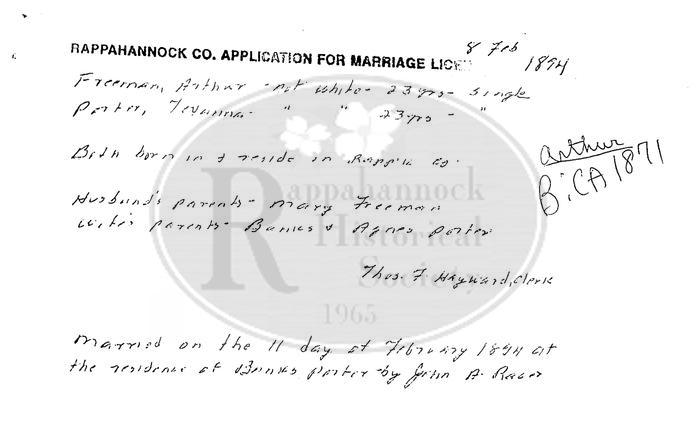 8 Feb 1894
RAPPAHANNOCK CO. APPLICATION FOR MARRIAGE LICEN
Freeman, Arthur - not white - 23 yrs - single
Porter, - " " 23 yrs - "
Both born in & reside in Rapp'k Co.
Arthur
B: CA 1871
Husband's parents - Mary Freeman
Wife's parents - Banks & Agnes Porter
Thos. F. Hayward, Clerk
Married on the 11 day of February 1894 at
the residence of Banks Porter by John A.
R
Rappahannock
Historical
Society
1965